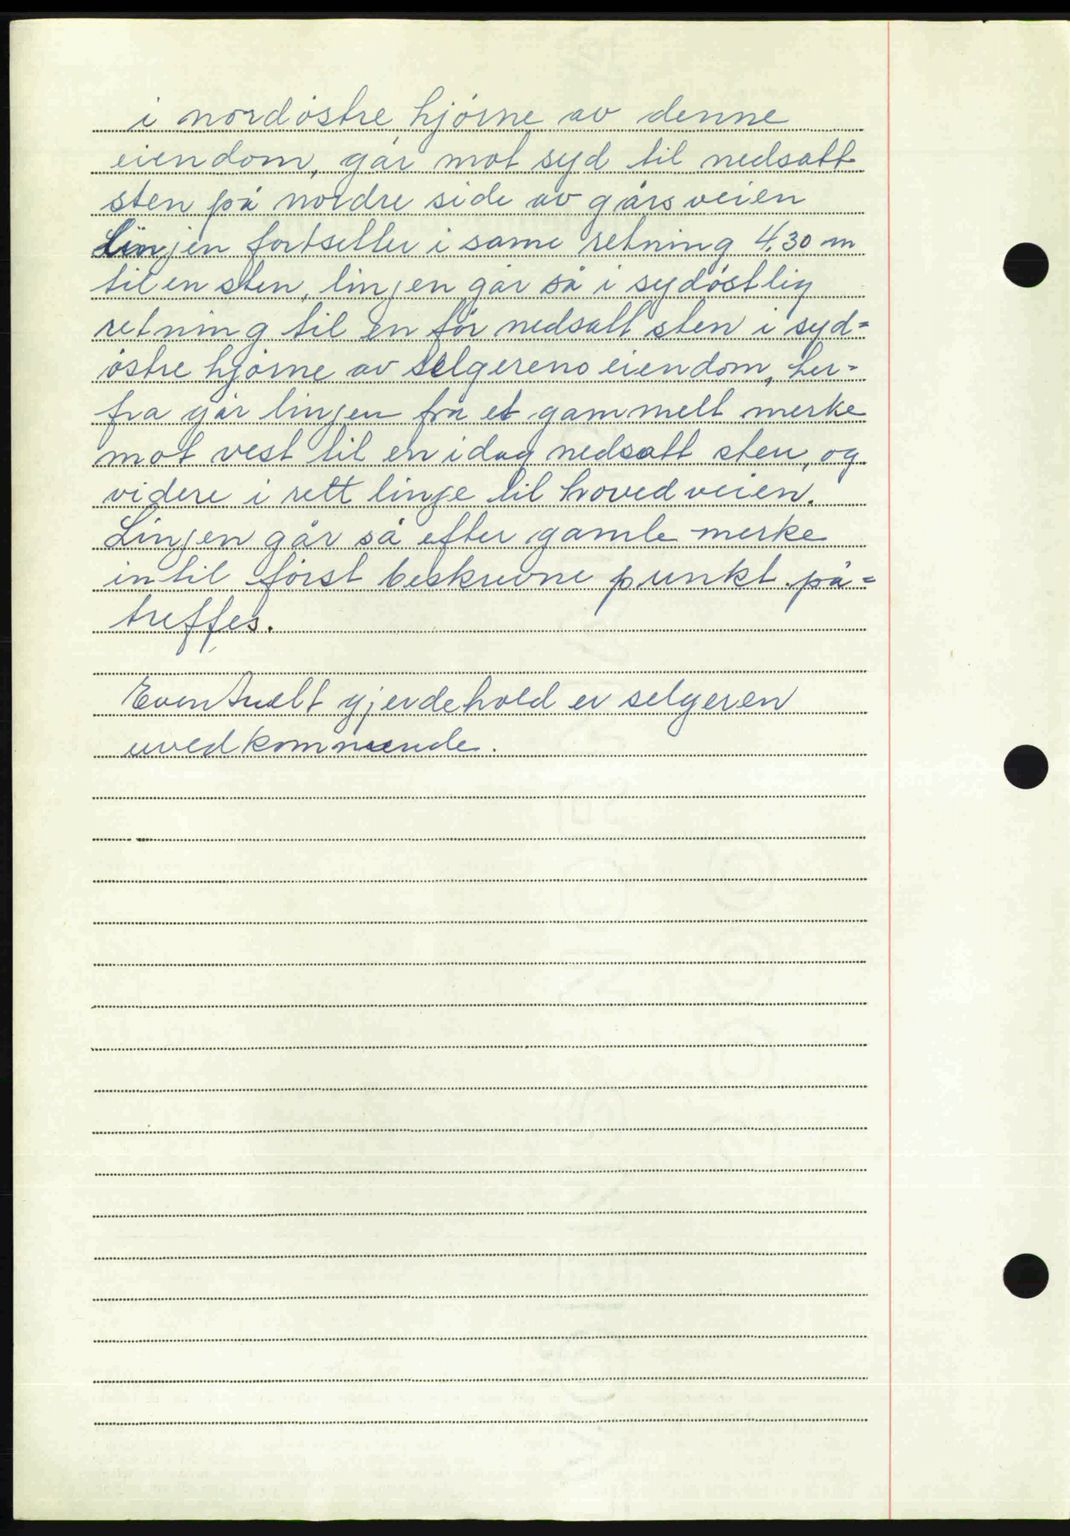 i nordöstre hjörne av denne
eiendom, går mot syd til nedsatt
sten på nordre side av gårsveien
Linjen fortsetter i same retning 4.30 m
til en sten, linjen går så i sydöstlig
retning til en för nedsatt sten i syd=
östre hjörne av selgerens eiendom, her=
fra går linjen fra et gammelt merke
mot vest til en idag nedsatt sten, og
videre i rett linje til hovedveien.
Linjen går så efter gamle merke
intil först beskrevne punkt på=
treffes.
Eventuelt gjerdehold er selgeren
uvedkommende.